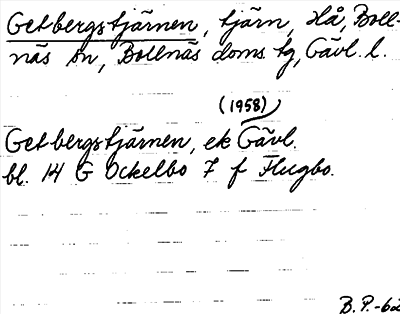 Getbergstjärnen, tjärn, Hå, Boll-
näs sn, Bollnäs doms. tg, Gävl. l.
(1958)
Getbergstjärnen, ek Gävl.
bl. 14 G Ockelbo 7 f Flugbo.
B. P. -62